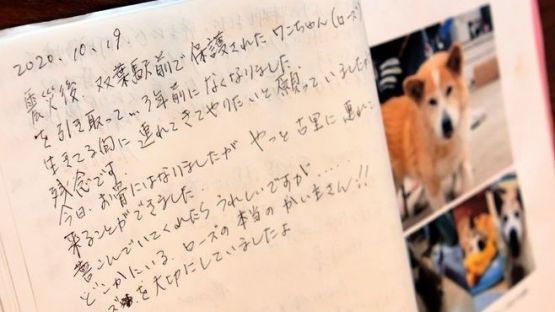 2020.10.19.
震災後、双葉駅前で保護されたワンちゃん(ローズ
を引き取って…3年前になくなりました.
生きてる内に連れてきてやりたいと願っていましたが
残念です.
今日、お骨にはなりましたがやっと古里に連れて
来ることができました.
喜こんでいてくれたらうれしいですが……
どこかにいる、ローズの本当のかい主さん!!
ズを大切にしていましたよ